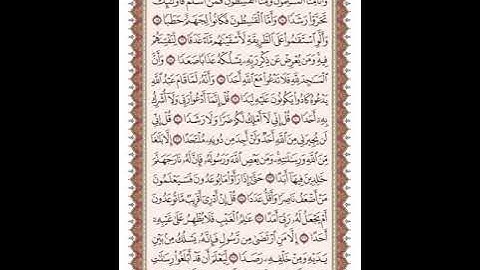 وَأَنَّا مِنَّا ٱلْمُسْلِمُونَ وَمِنَّا ٱلْقَٰسِطُونَ فَمَنْ أَسْلَمَ فَأُو۟لَٰٓئِكَ
تَحَرَّوْا۟ رَشَدًا ۝ وَأَمَّا ٱلْقَٰسِطُونَ فَكَانُوا۟ لِجَهَنَّمَ حَطَبًا ۝
وَأَلَّوِ ٱسْتَقَٰمُوا۟ عَلَى ٱلطَّرِيقَةِ لَأَسْقَيْنَٰهُم مَّآءً غَدَقًا ۝ لِّنَفْتِنَهُمْ
فِيهِ وَمَن يُعْرِضْ عَن ذِكْرِ رَبِّهِۦ يَسْلُكْهُ عَذَابًا صَعَدًا ۝ وَأَنَّ
ٱلْمَسَٰجِدَ لِلَّهِ فَلَا تَدْعُوا۟ مَعَ ٱللَّهِ أَحَدًا ۝ وَأَنَّهُۥ لَمَّا قَامَ عَبْدُ ٱللَّهِ
يَدْعُوهُ كَادُوا۟ يَكُونُونَ عَلَيْهِ لِبَدًا ۝ قُلْ إِنَّمَآ أَدْعُوا۟ رَبِّى وَلَآ أُشْرِكُ
بِهِۦٓ أَحَدًا ۝ قُلْ إِنِّى لَآ أَمْلِكُ لَكُمْ ضَرًّا وَلَا رَشَدًا ۝ قُلْ إِنِّى
لَن يُجِيرَنِى مِنَ ٱللَّهِ أَحَدٌ وَلَنْ أَجِدَ مِن دُونِهِۦ مُلْتَحَدًا ۝ إِلَّا بَلَٰغًا
مِّنَ ٱللَّهِ وَرِسَٰلَٰتِهِۦ وَمَن يَعْصِ ٱللَّهَ وَرَسُولَهُۥ فَإِنَّ لَهُۥ نَارَ جَهَنَّمَ
خَٰلِدِينَ فِيهَآ أَبَدًا ۝ حَتَّىٰٓ إِذَا رَأَوْا۟ مَا يُوعَدُونَ فَسَيَعْلَمُونَ
مَنْ أَضْعَفُ نَاصِرًا وَأَقَلُّ عَدَدًا ۝ قُلْ إِنْ أَدْرِىٓ أَقَرِيبٌ مَّا تُوعَدُونَ
أَمْ يَجْعَلُ لَهُۥ رَبِّىٓ أَمَدًا ۝ عَٰلِمُ ٱلْغَيْبِ فَلَا يُظْهِرُ عَلَىٰ غَيْبِهِۦٓ
أَحَدًا ۝ إِلَّا مَنِ ٱرْتَضَىٰ مِن رَّسُولٍ فَإِنَّهُۥ يَسْلُكُ مِنۢ بَيْنِ
يَدَيْهِ وَمِنْ خَلْفِهِۦ رَصَدًا ۝ لِّيَعْلَمَ أَن قَدْ أَبْلَغُوا۟ رِسَٰلَٰتِ